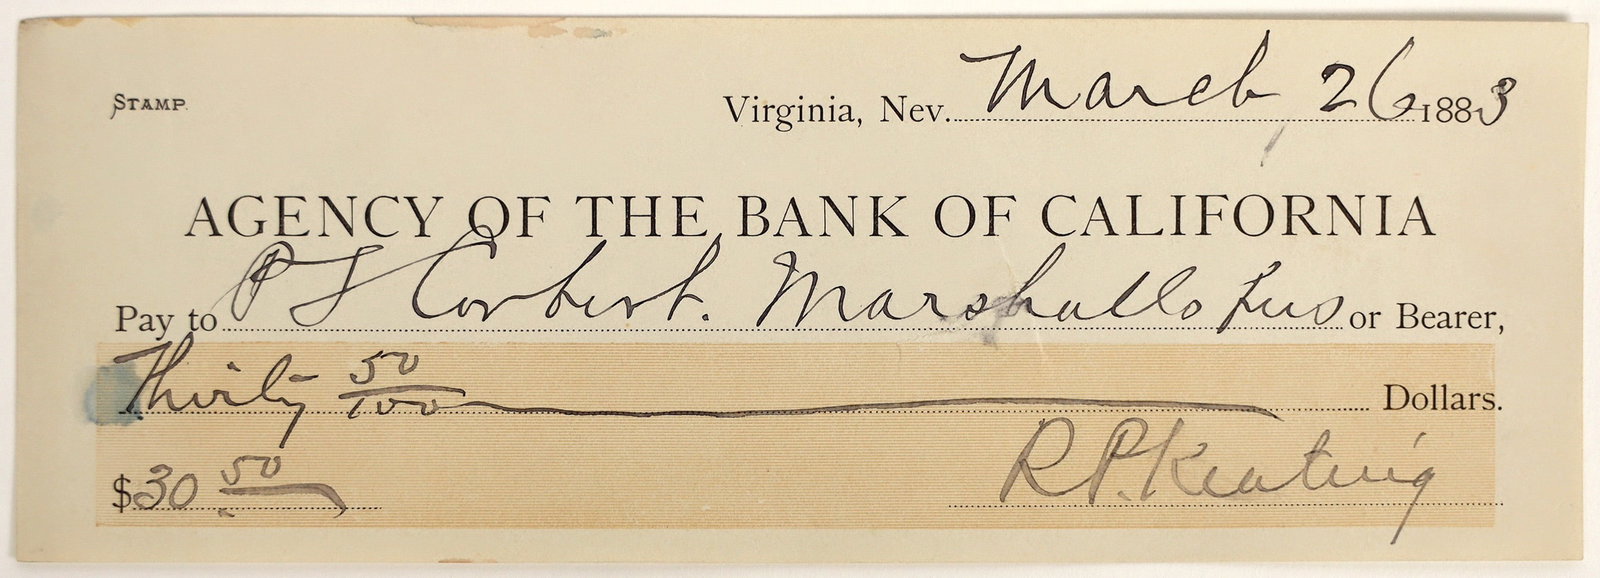 STAMP.
Virginia, Nev. March 26 1883
AGENCY OF THE BANK OF CALIFORNIA
Pay to P S Corbert. Marshall or Bearer,
Thirty 50/100 Dollars.
$30 50
R. P. Keating